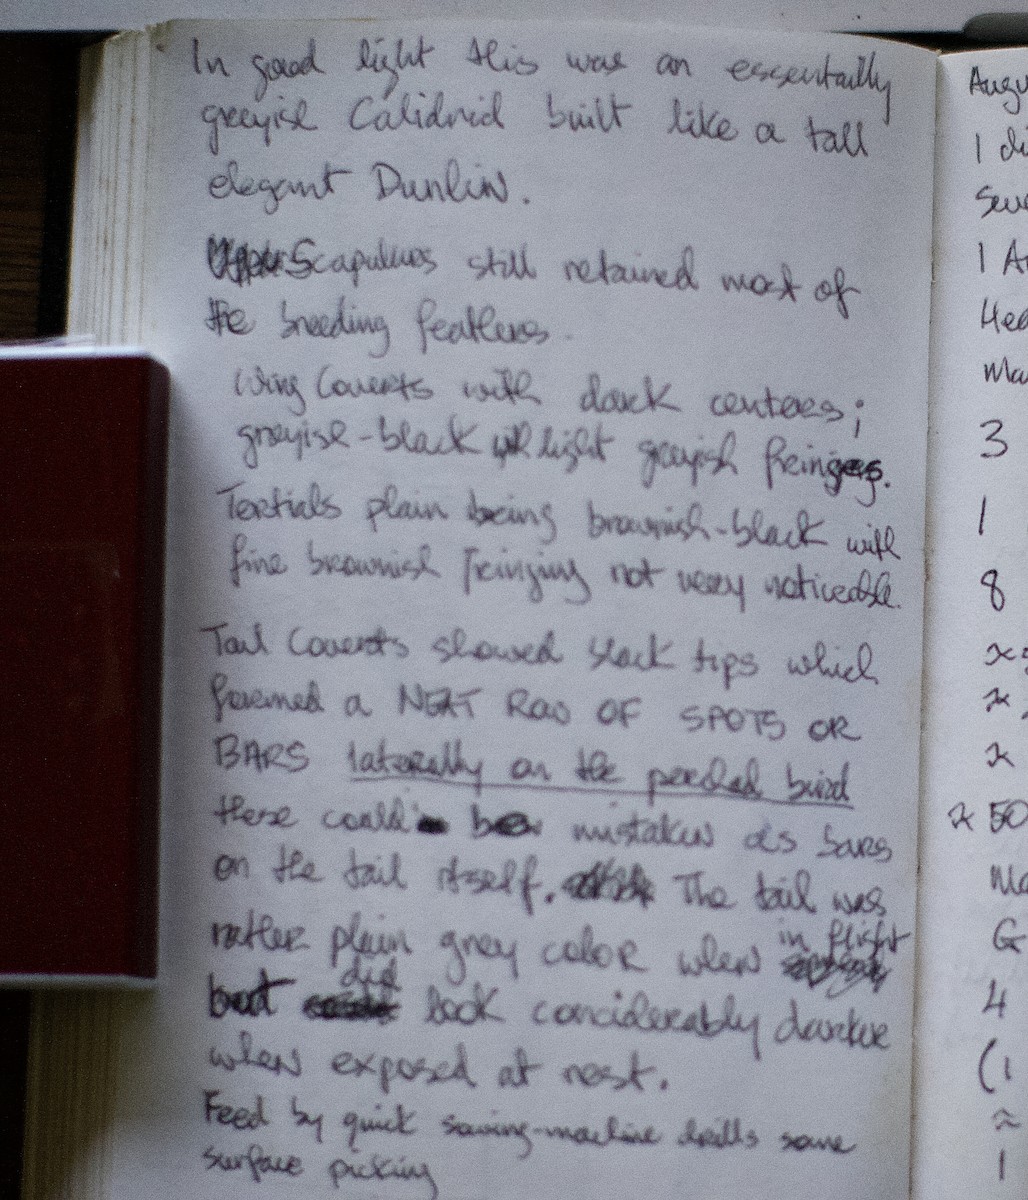 In good light this was an essentailly
greyish Calidrid built like a tall
elegant Dunlin.
Scapulars still retained most of
the breeding feathers.
Wing Coverts with dark centers;
greyish-black light greyish fringes.
Tertials plain being brownish-black with
fine brownish fringing not very noticeable.
Tail Coverts showed black tips which
formed a NEAT ROW OF SPOTS OR
BARS laterally on the perched bird
these could be mistaken as bars
on the tail itself. The tail was
rather plain grey color when in flight
but did look conciderably darker
when exposed at rest.
Feed by quick sewing-machine drills some
surface picking
3
1
8
50
4
(1
1